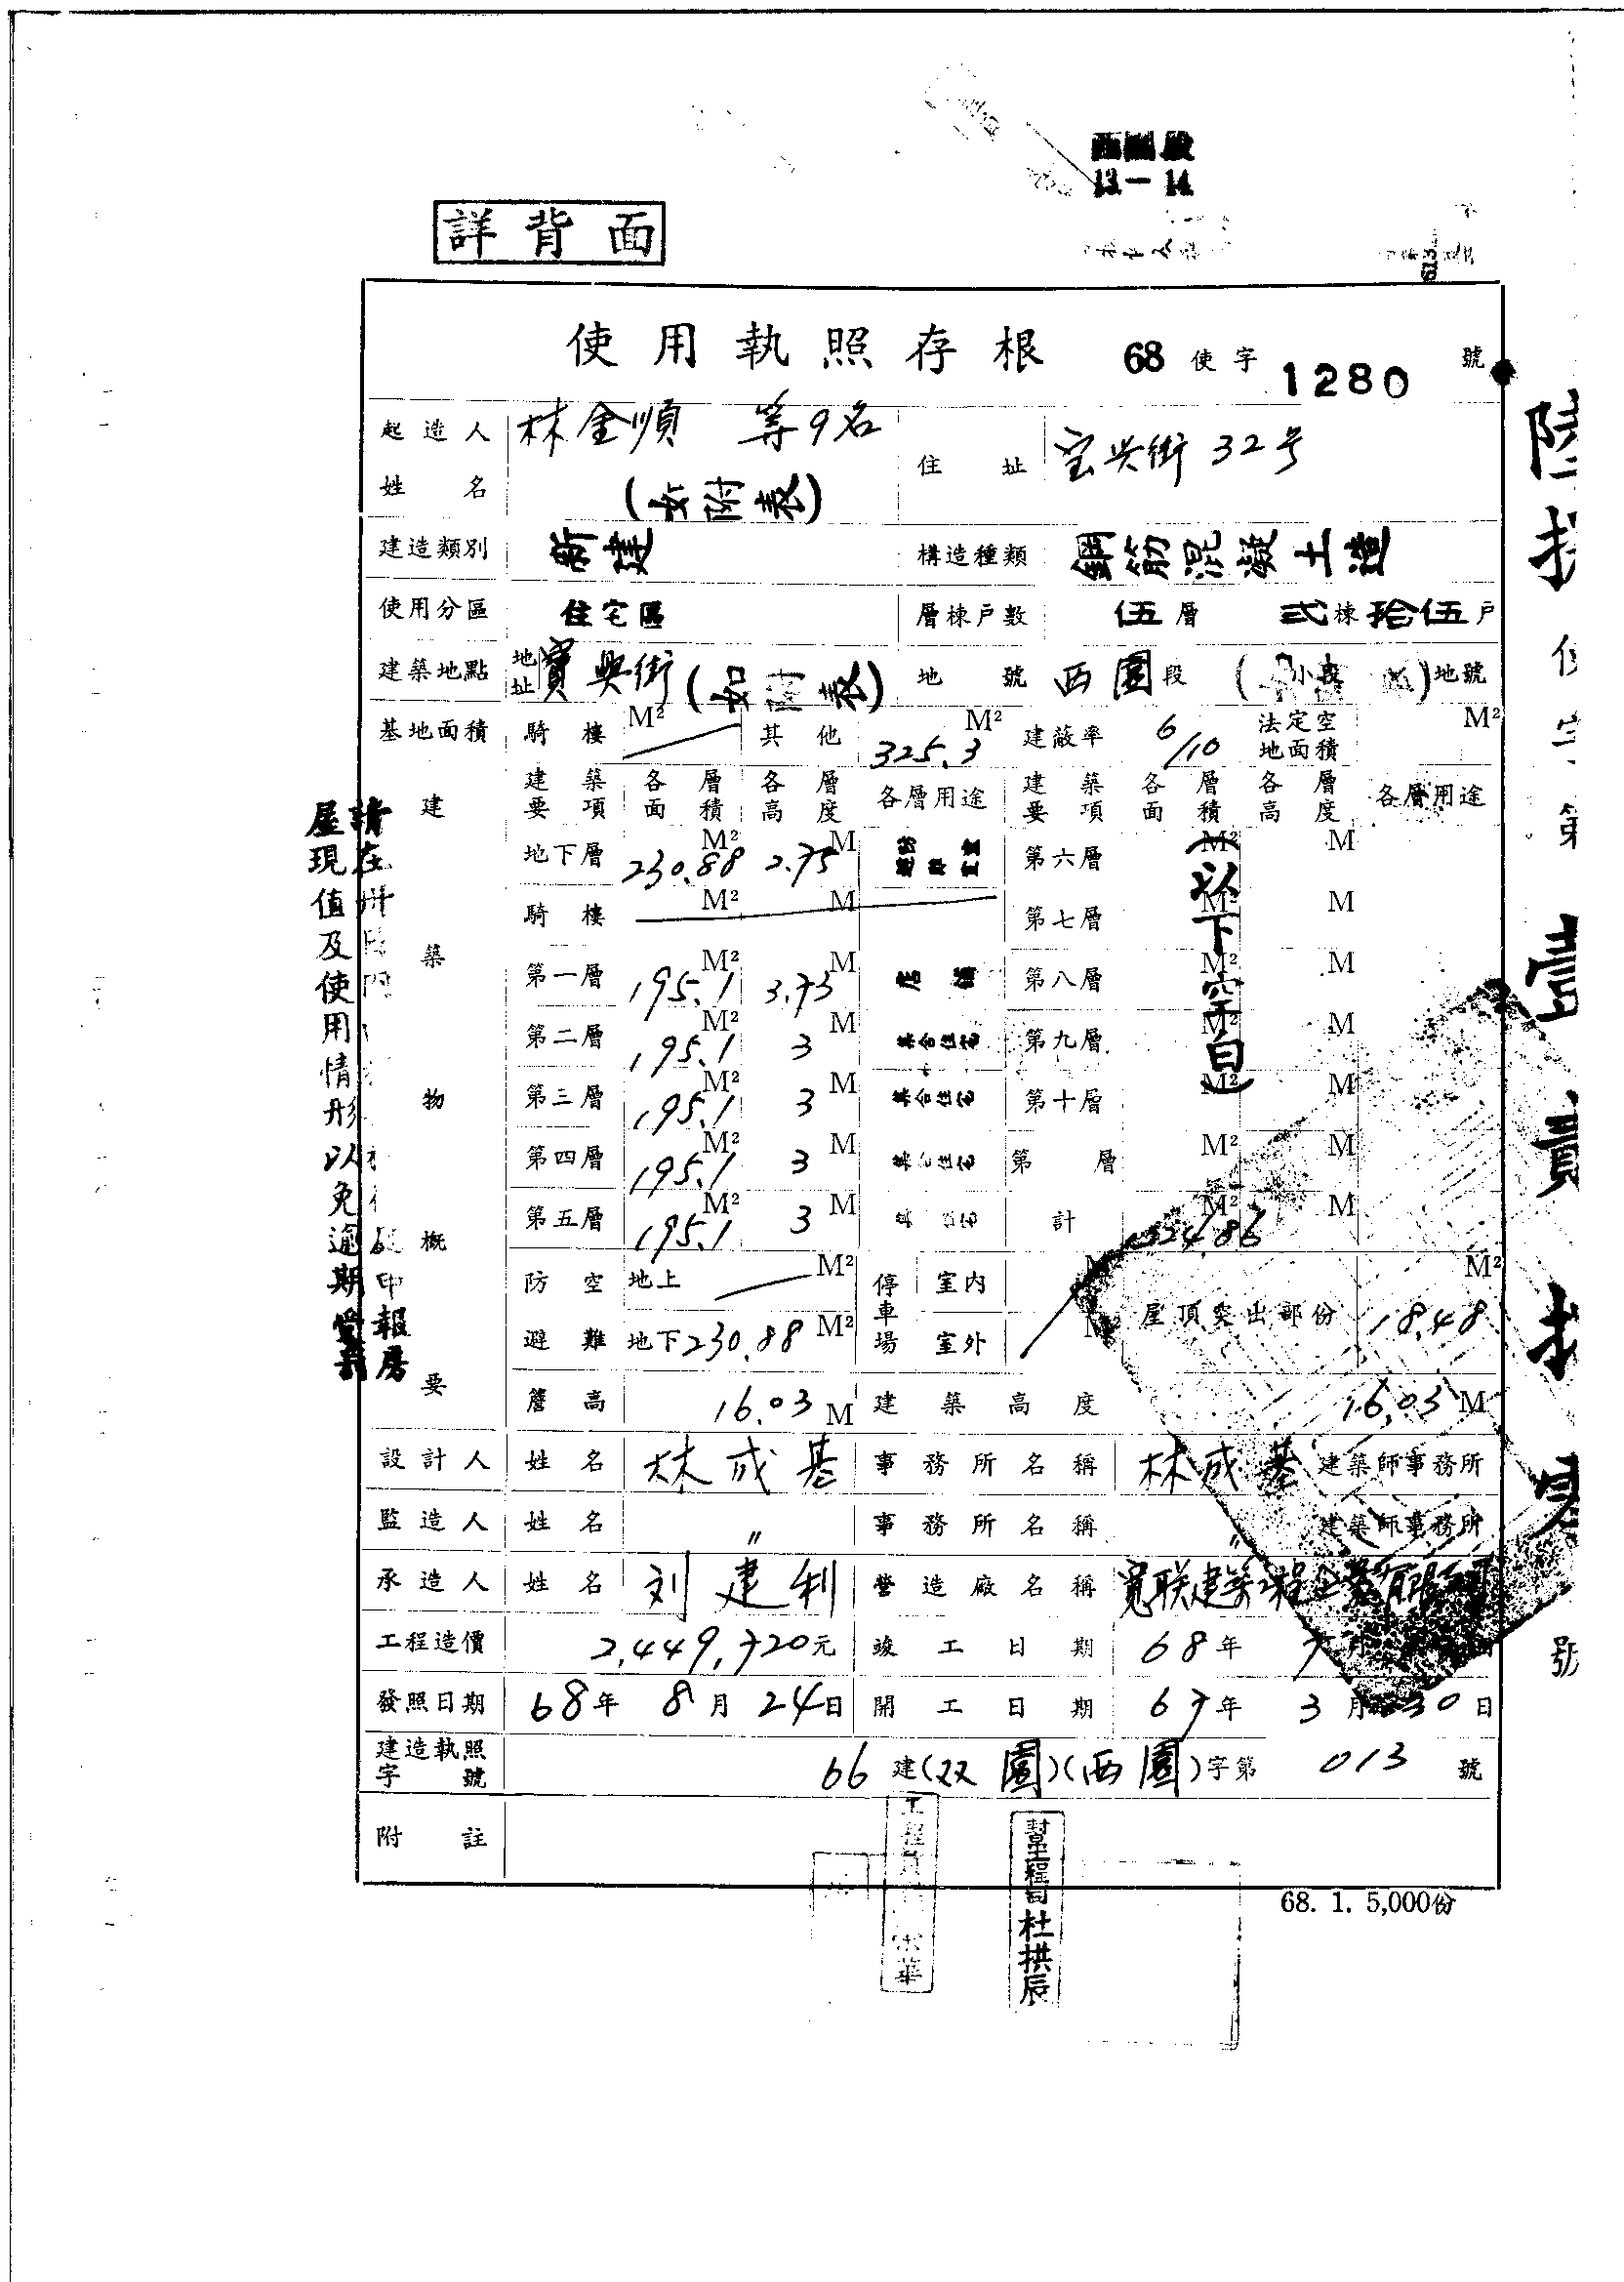 西園段
13－14
詳背面
使用執照存根 68 使字 1280 號
起造人姓名 林金順 等9名 (如附表) 住址 宝兴街 32号
建造類別 新建 構造種類 鋼筋混凝土造
使用分區 住宅區 層棟戶數 伍層 弍棟拾伍戶
建築地點 地址 寶興街(如附表) 地號 西園段 ( 小段 )地號
基地面積 騎樓 M² 其他 325.3 M² 建蔽率 6/10 法定空地面積 M²
建築要項 各層面積 各層高度 各層用途 建築要項 各層面積 各層高度 各層用途
建築物概要
地下層 230.88 M² 2.75 M 第六層 M² M
騎樓 M² M 第七層 M² M
第一層 195.1 M² 3.73 M 店舖 第八層 M² M
第二層 195.1 M² 3 M 集合住宅 第九層 M² M
第三層 195.1 M² 3 M 集合住宅 第十層 M² M
第四層 195.1 M² 3 M 集合住宅 第 層 M² M
第五層 195.1 M² 3 M 計 M² M
(以下空白)
防空避難 地上 M² 停車場 室內 屋頂突出部份 18.48 M²
地下 230.88 M² 室外
簷高 16.03 M 建築高度 16.03 M
設計人 姓名 林成基 事務所名稱 林成基 建築師事務所
監造人 姓名 〃 事務所名稱 〃 建築師事務所
承造人 姓名 刘建利 營造廠名稱
工程造價 2,449,720元 竣工日期 68年 7月 日
發照日期 68年 8月 24日 開工日期 67年 3月 30日
建造執照字號 66 建(双園)(西園)字第 013 號
附註
68. 1. 5,000份
杜拱辰
屋現值及使用情形以免逾期
使字第
號